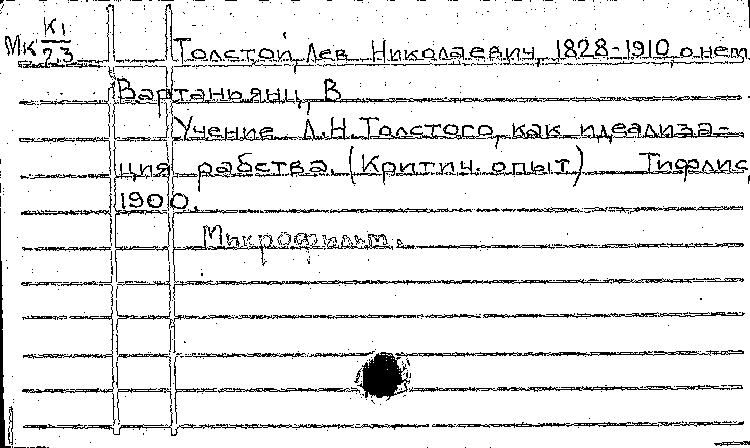 Мк К1
7.3
Толстой, Лев Николаевич, 1828-1910, о нем
Вартаньянц, В
Учение Л.Н.Толстого, как идеализа-
ция рабства. (Критич. опыт) Тифлис,
1900.
Микрофильм.